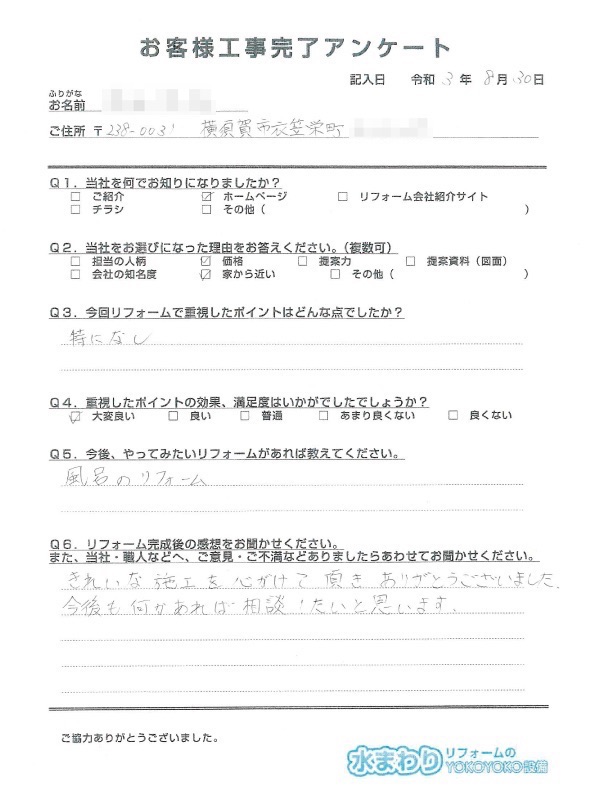 お客様工事完了アンケート
記入日 令和 3 年 8 月 30 日
ふりがな
お名前
ご住所 〒238-0031 横須賀市衣笠栄町
Q1．当社を何でお知りになりましたか？
□ ご紹介 ☑ ホームページ □ リフォーム会社紹介サイト
□ チラシ □ その他（ ）
Q2．当社をお選びになった理由をお答えください。（複数可）
□ 担当の人柄 ☑ 価格 □ 提案力 □ 提案資料（図面）
□ 会社の知名度 ☑ 家から近い □ その他（ ）
Q3．今回リフォームで重視したポイントはどんな点でしたか？
特になし
Q4．重視したポイントの効果、満足度はいかがでしたでしょうか？
☑ 大変良い □ 良い □ 普通 □ あまり良くない □ 良くない
Q5．今後、やってみたいリフォームがあれば教えてください。
風呂のリフォーム
Q6．リフォーム完成後の感想をお聞かせください。
また、当社・職人などへ、ご意見・ご不満などありましたらあわせてお聞かせください。
きれいな施工を心がけて頂きありがとうございました.
今後も何かあれば相談したいと思います.
ご協力ありがとうございました。
水まわりリフォームの
YOKOYOKO設備